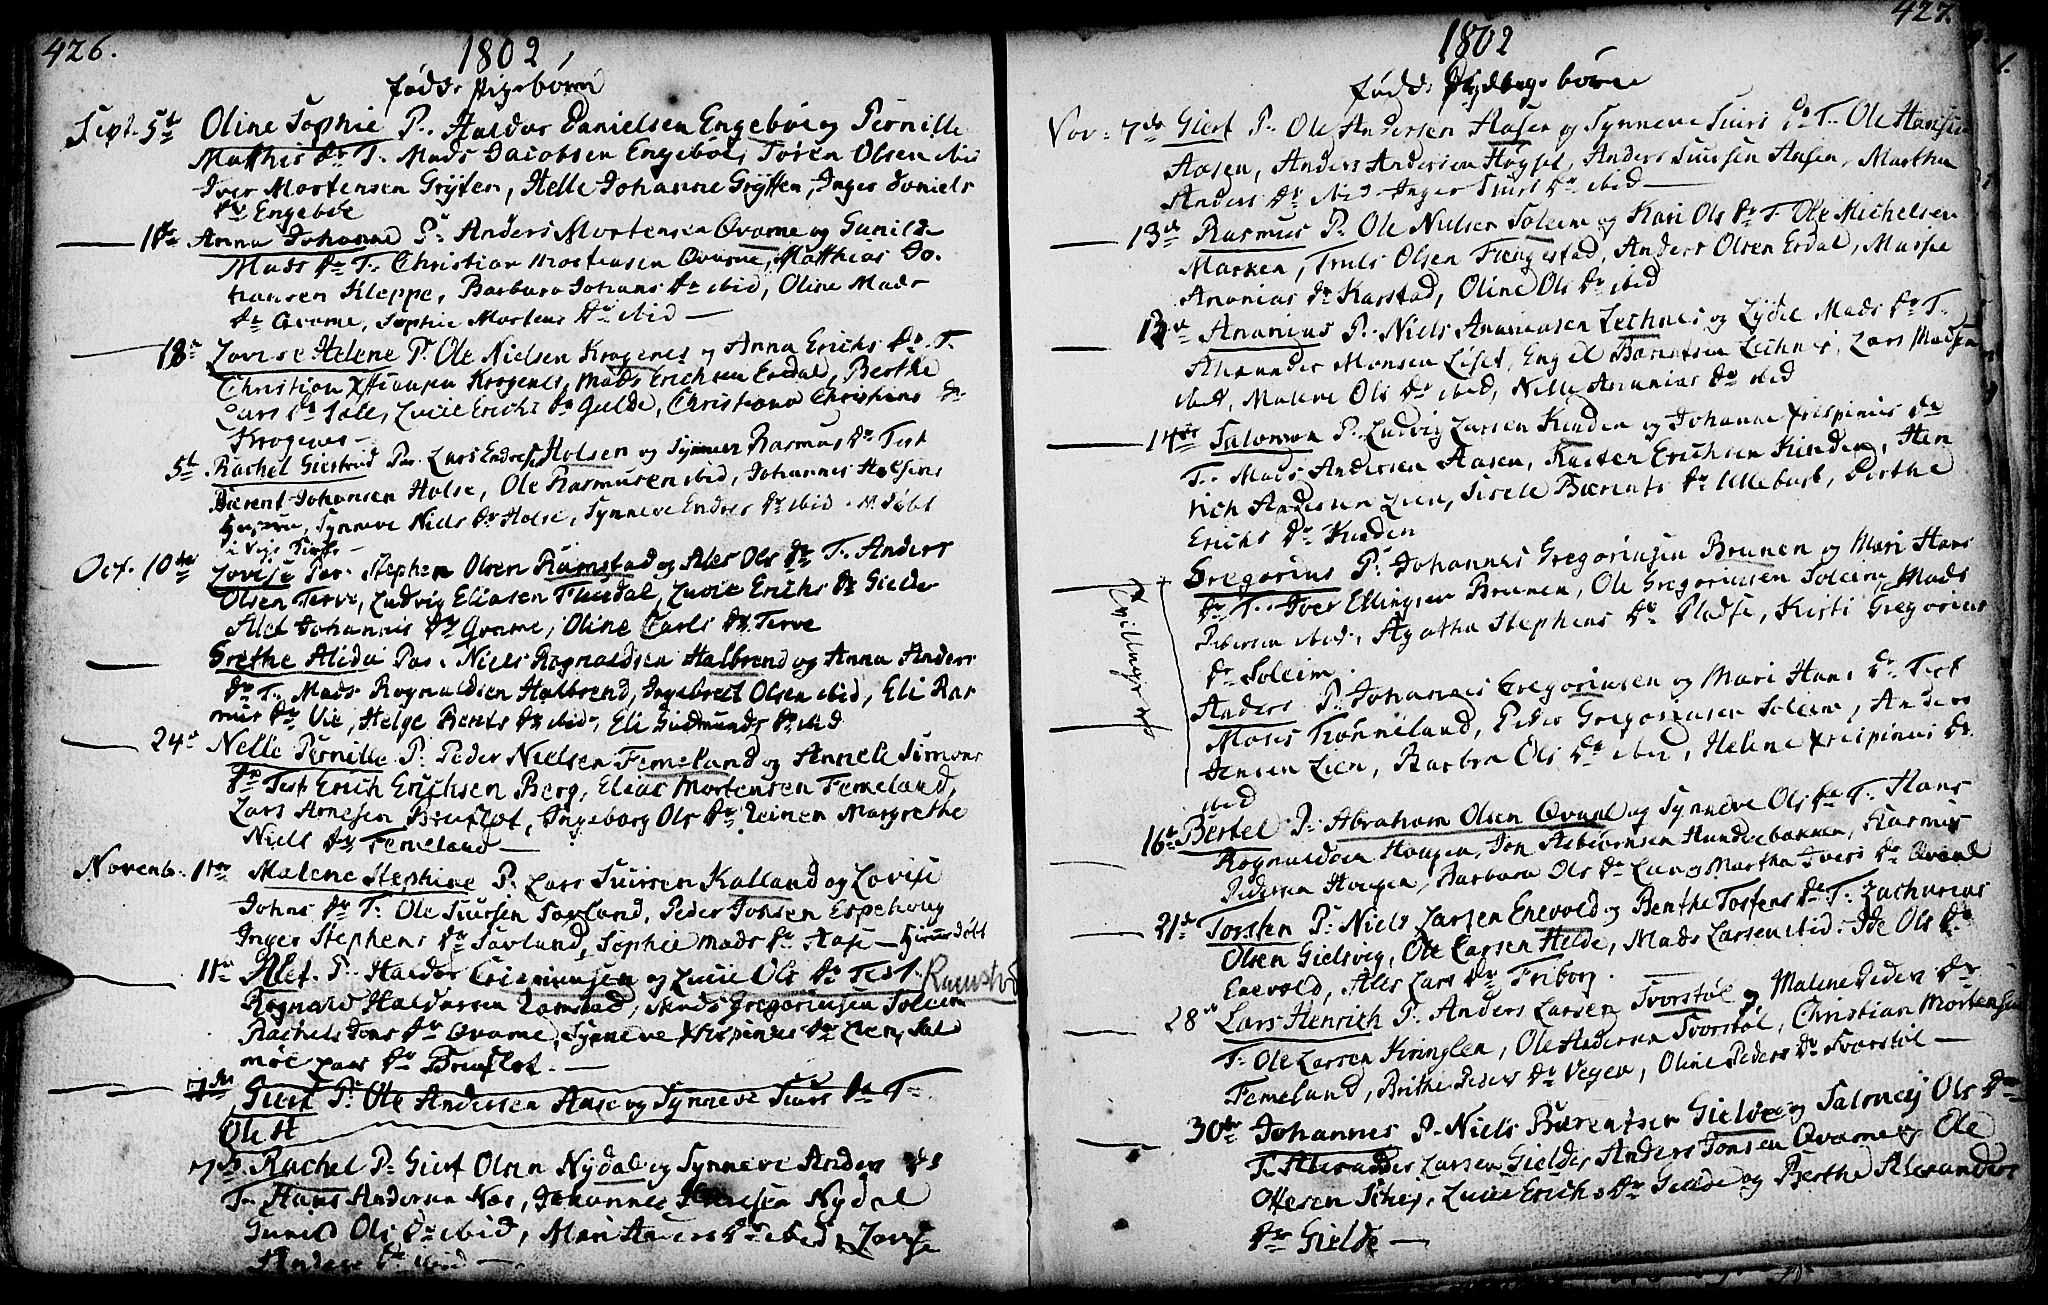 426.
1802
fødde Pigebørn
Sept. 5t Oline Sophie P. Haldor Danielsen Engebøe og Pernille
Mathis Dr T. Mads Jacobsen Engeboe, Søren Olsen ibid
Iver Mortensen Gryten, Helle Johanne Grytten, Inger Daniels
Dr Engebøe
11te Anna Johanne P. Anders Mortensen Qvame og Gunild
Mads Dr T. Christian Mortensen Qvame, Matthias Jo-
hansen Kleppe, Barbara Johans Dr ibid, Oline Mads
Dr Qvame, Sophie Mortens Dr ibid
18e Lovise Helene P. Ole Nielsen Krogenes og Anna Erichs Dr T.
Christian Krogenes, Mads Erichsen Erdal, Berthe
Lars Dr Solle, Lucie Erichs Dr Gielde, Christiana Christians Dr
Krogenes
5t Rachel Giestrud Par. Lars Endresen Holsen og Synnev Rasmus Dr Test
Bærent Johansen Holse, Ole Rasmusen ibid, Johannes Holsens
Synneve Niels Dr Holse, Synneve Endres Dr ibid. N. Døbt
i
Oct. 10de Lovise Par. Stephen Olsen Ramstad og Ales Ols Dr T. Anders
Olsen Terve, Ludvig Eliasen Flusdal, Lucie Erichs Dr Gielde
Alet Johannis Dr Qvame, Oline Carls Dr Terve
Grethe Alida Par. Niels Rognaldsen Halbrend og Anna Anders
Dr T. Mads Rognaldsen Halbrend, Ingebret Olsen ibid, Eli Ras
mus Dr Vie, Helge Bents Dr ibid, Eli Gudmunds Dr ibid
24e Nelle Pernille P. Peder Nielsen Femeland og Annele Simons
Dr Test Erich Erichsen Berg, Elias Mortensen Femeland,
Lars Arnesen Bruflot, Ingeborg Ols Dr Reinen Margrethe
Niels Dr Femeland
Novemb. 1ste Malene Stephine P. Lars Siursen Kalland og Lovise
Johns Dr T. Ole Siursen Savland, Peder Johsen Espehoug
Inger Stephens Dr Savland, Sophie Mads Dr Aase - Hiemdøbt
11te Alet P. Haldor Crispinusen og Lucie Ols Dr Test. Ramstad
Rognald Haldorsen Ramstad, Mads Gregoriusen Soleim
Rachel Jons Dr Qvame, Synneve Xrispinus Dr Lien, Sal
moe Lars Dr Bruflot.
7de Giert P. Ole Andersen Aase og Synneve Siurs Dr T.
Ole H
7de Rachel P. Giert Olsen Nydal og Synneve Anders Dr
T. Hans Andersen Nos, Johannes Nydal
Gunild Ols Dr ibid, Mari Dr ibid, Lovise
Anders Dr ibid
427.
1802
fødde børn
Nov. 7de Giert P. Ole Andersen Aasen og Synneve Siurs Dr T. Ole Hansen
Aasen, Anders Andersen Høgset, Anders Siursen Aasen, Martha
Anders Dr ibid Inger Siurs Dr ibid
13de Rasmus P. Ole Nielsen Soleim og Kari Ols Dr T. Ole Michelsen
Marken, Truls Olsen Fængestad, Anders Olsen Erdal, Massie
Ananias Dr Karstad, Oline Ols Dr ibid
13de Ananias P. Niels Ananiasen Lechnes og Lydie Mads Dr T.
Alexander Monsen Liset, Engel Bærentsen Lechnes, Lars Madsen
ibid, Malene Ols Dr ibid, Nelle Ananias Dr ibid
14de Salomon P. Ludvig Larsen Kinden og Johanne Xrispinus Dr
T. Mads Andersen Aasen, Karsten Erichsen Kinden, Hen
rich Andersen Lien, Sisele Bærents Dr Ullebust, Berthe
Erichs Dr Kinden
Tvillinger
Gregorius P. Johannes Gregoriusen Brunen og Mari Hans
Dr T. Iver Ellingsen Brunen, Ole Gregoriusen Soleim, Mads
Pedersen ibid, Agatha Stephens Dr Pladse, Kirsti Gregorius
Dr Soleim.
Anders P. Johannes Gregoriusen og Mari Hans Dr Test
Moses Rønneland, Peder Gregoriusen Soleim, Anders
Jensen Lien, Barbra Ols Dr ibid, Helene Xrispinus Dr
ibid
16de Bertel P. Abraham Olsen Qvaal og Synneve Ols Dr T. Hans
Rognaldsen Hougen, Jon Asbiørnsen Hundebakken, Rasmus
Pedersen Hougen, Barbara Ols Dr Martha Ivers Dr Qvaal
21de Torsten P. Niels Larsen Enevold og Benthe Tostens Dr T. Zacharias
Olsen Gielsvig, Ole Larsen Helde, Mads Larsen ibid. Ide Ols Dr
Enevold, Ales Lars Dr Friborg.
28de Lars Henrich P. Anders Larsen Svorstøl og Malene Peders Dr
T. Ole Larsen Kringlen, Ole Andersen Svorstøl, Christian Mortensen
Femeland, Brithe Peders Dr Vegen, Oline Peders Dr Svorstøl
30te Johannes P. Niels Bærentsen Gielde og Salomej Ols Dr
T. Alexander Larsen Gielde, Anders Jonsen Qvame og Ole
Ottesen Schej, Lucie Erichs Dr Gielde og Berthe Alexanders
Dr Gielde